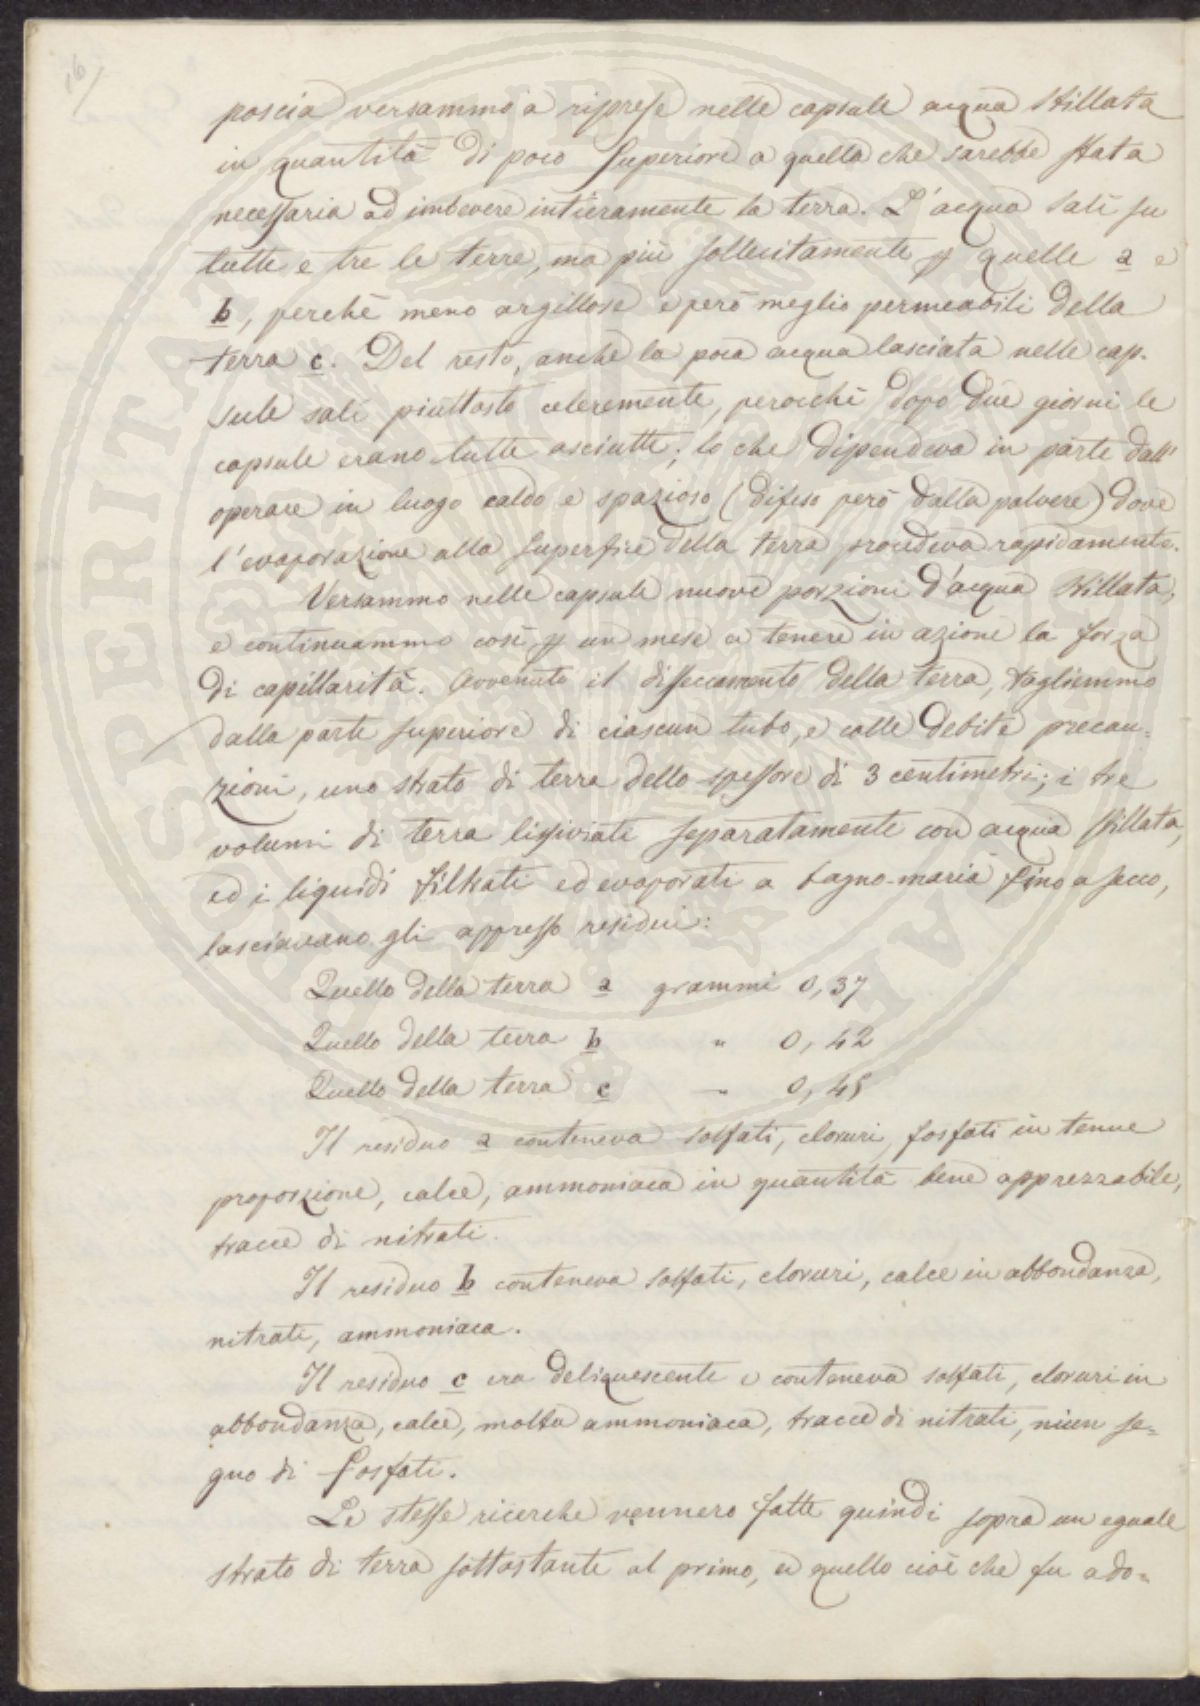 16/
poscia versammo a riprese nelle capsule acqua stillata
in quantità di poco superiore a quella che sarebbe stata
necessaria ad imbevere intieramente la terra. L'acqua salì su
tutte e tre le terre, ma più sollecitamente p quelle a e
b, perchè meno argillose e però meglio permeabili della
terra c. Del resto, anche la poca acqua lasciata nelle cap-
sule salì piuttosto celeremente, perocchè dopo due giorni le
capsule erano tutte asciutte; lo che dipendeva in parte dall'
operare in luogo caldo e spazioso (difeso però dalla polvere) dove
l'evaporazione alla superfice della terra procedeva rapidamente.
Versammo nelle capsule nuove porzioni d'acqua stillata,
e continuammo così p un mese a tenere in azione la forza
di capillarità. Avvenuto il disseccamento della terra, tagliammo
dalla parte superiore di ciascun tubo, e colle debite precau=
zioni, uno strato di terra dello spessore di 3 centimetri; i tre
volumi di terra lissiviati separatamente con acqua stillata,
ed i liquidi filtrati ed evaporati a bagno-maria fino a secco,
lasciavano gli appresso residui:
Quello della terra a grammi 0,37
Quello della terra b " 0,42
Quello della terra c " 0,45
Il residuo a conteneva solfati, cloruri, fosfati in tenue
proporzione, calce, ammoniaca in quantità bene apprezzabile,
tracce di nitrati.
Il residuo b conteneva solfati, cloruri, calce in abbondanza,
nitrati, ammoniaca.
Il residuo c era deliquescente e conteneva solfati, cloruri in
abbondanza, calce, molta ammoniaca, tracce di nitrati, niun se=
gno di fosfati.
Le stesse ricerche vennero fatte quindi sopra un eguale
strato di terra sottostante al primo, a quello cioè che fu ado=
PROSPERITATI PUBLICAE AUGENDAE